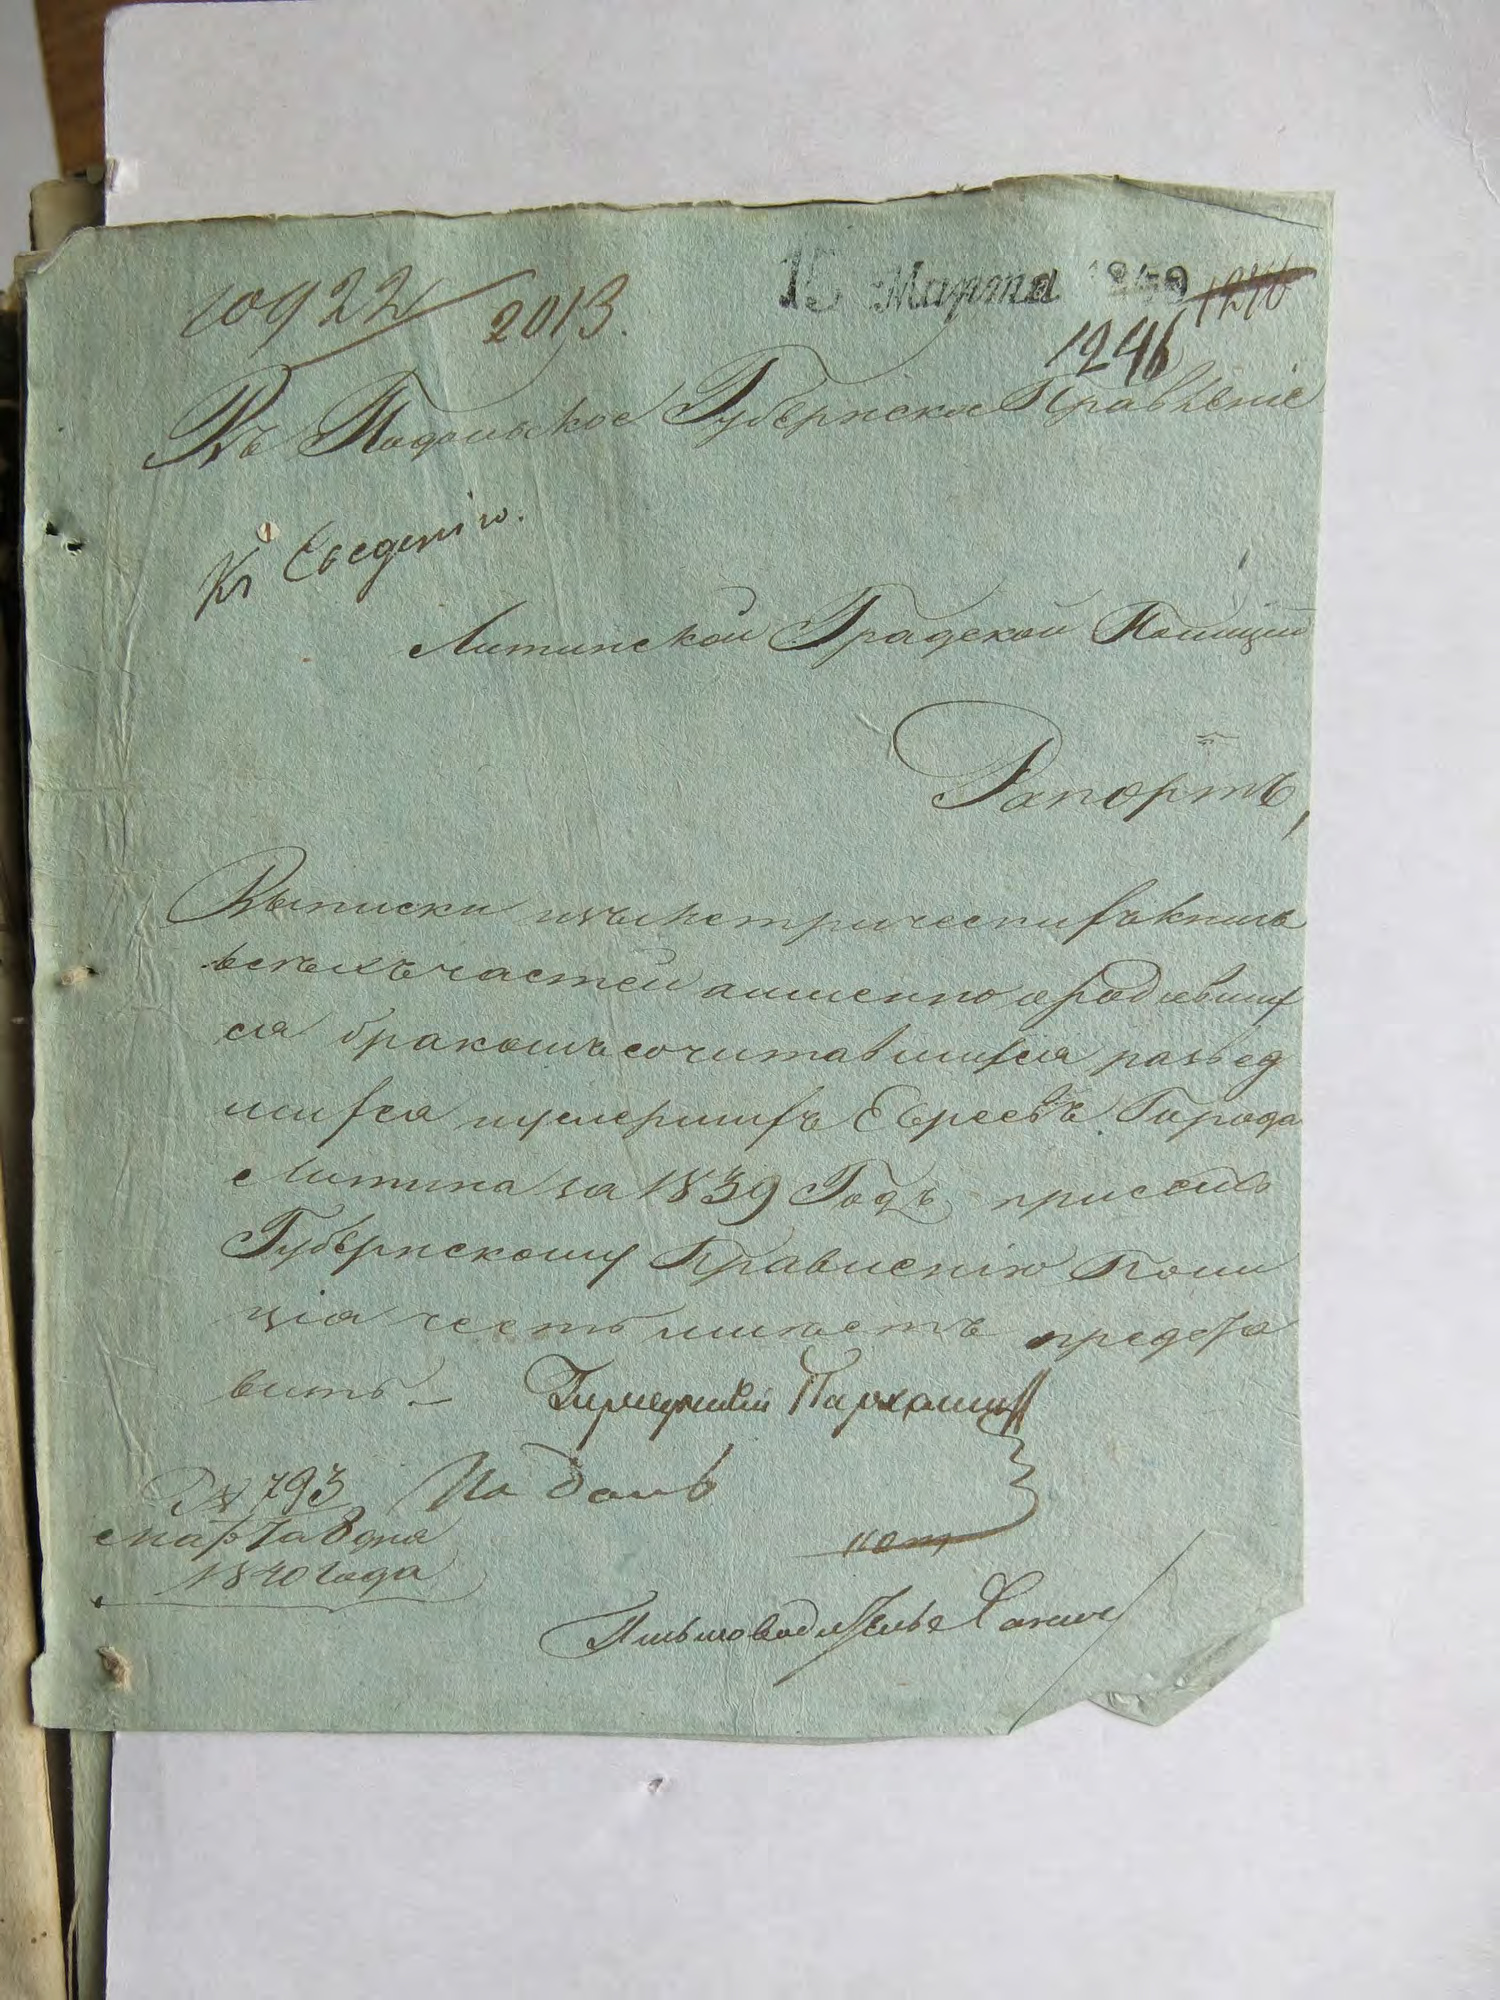 10922 2013.
15 Марта 1840 1246
1246
Въ Подольское Губернское Правленіе
Къ Сведенію.
Литинской Градской Полиціи
Рапортъ,
Выписки изъ метрическихъ книгъ
всехъ частей а именно о родивших
ся бракомъ сочитавшихся развед
шихся и умершихъ Евреевъ Города
Литина за 1839 Годъ при семъ
Губернскому Правленію Поли
ція честь имеетъ предста
вить. Городничій
№ 793
Марта 8 дня
1840 года
Письмоводитель